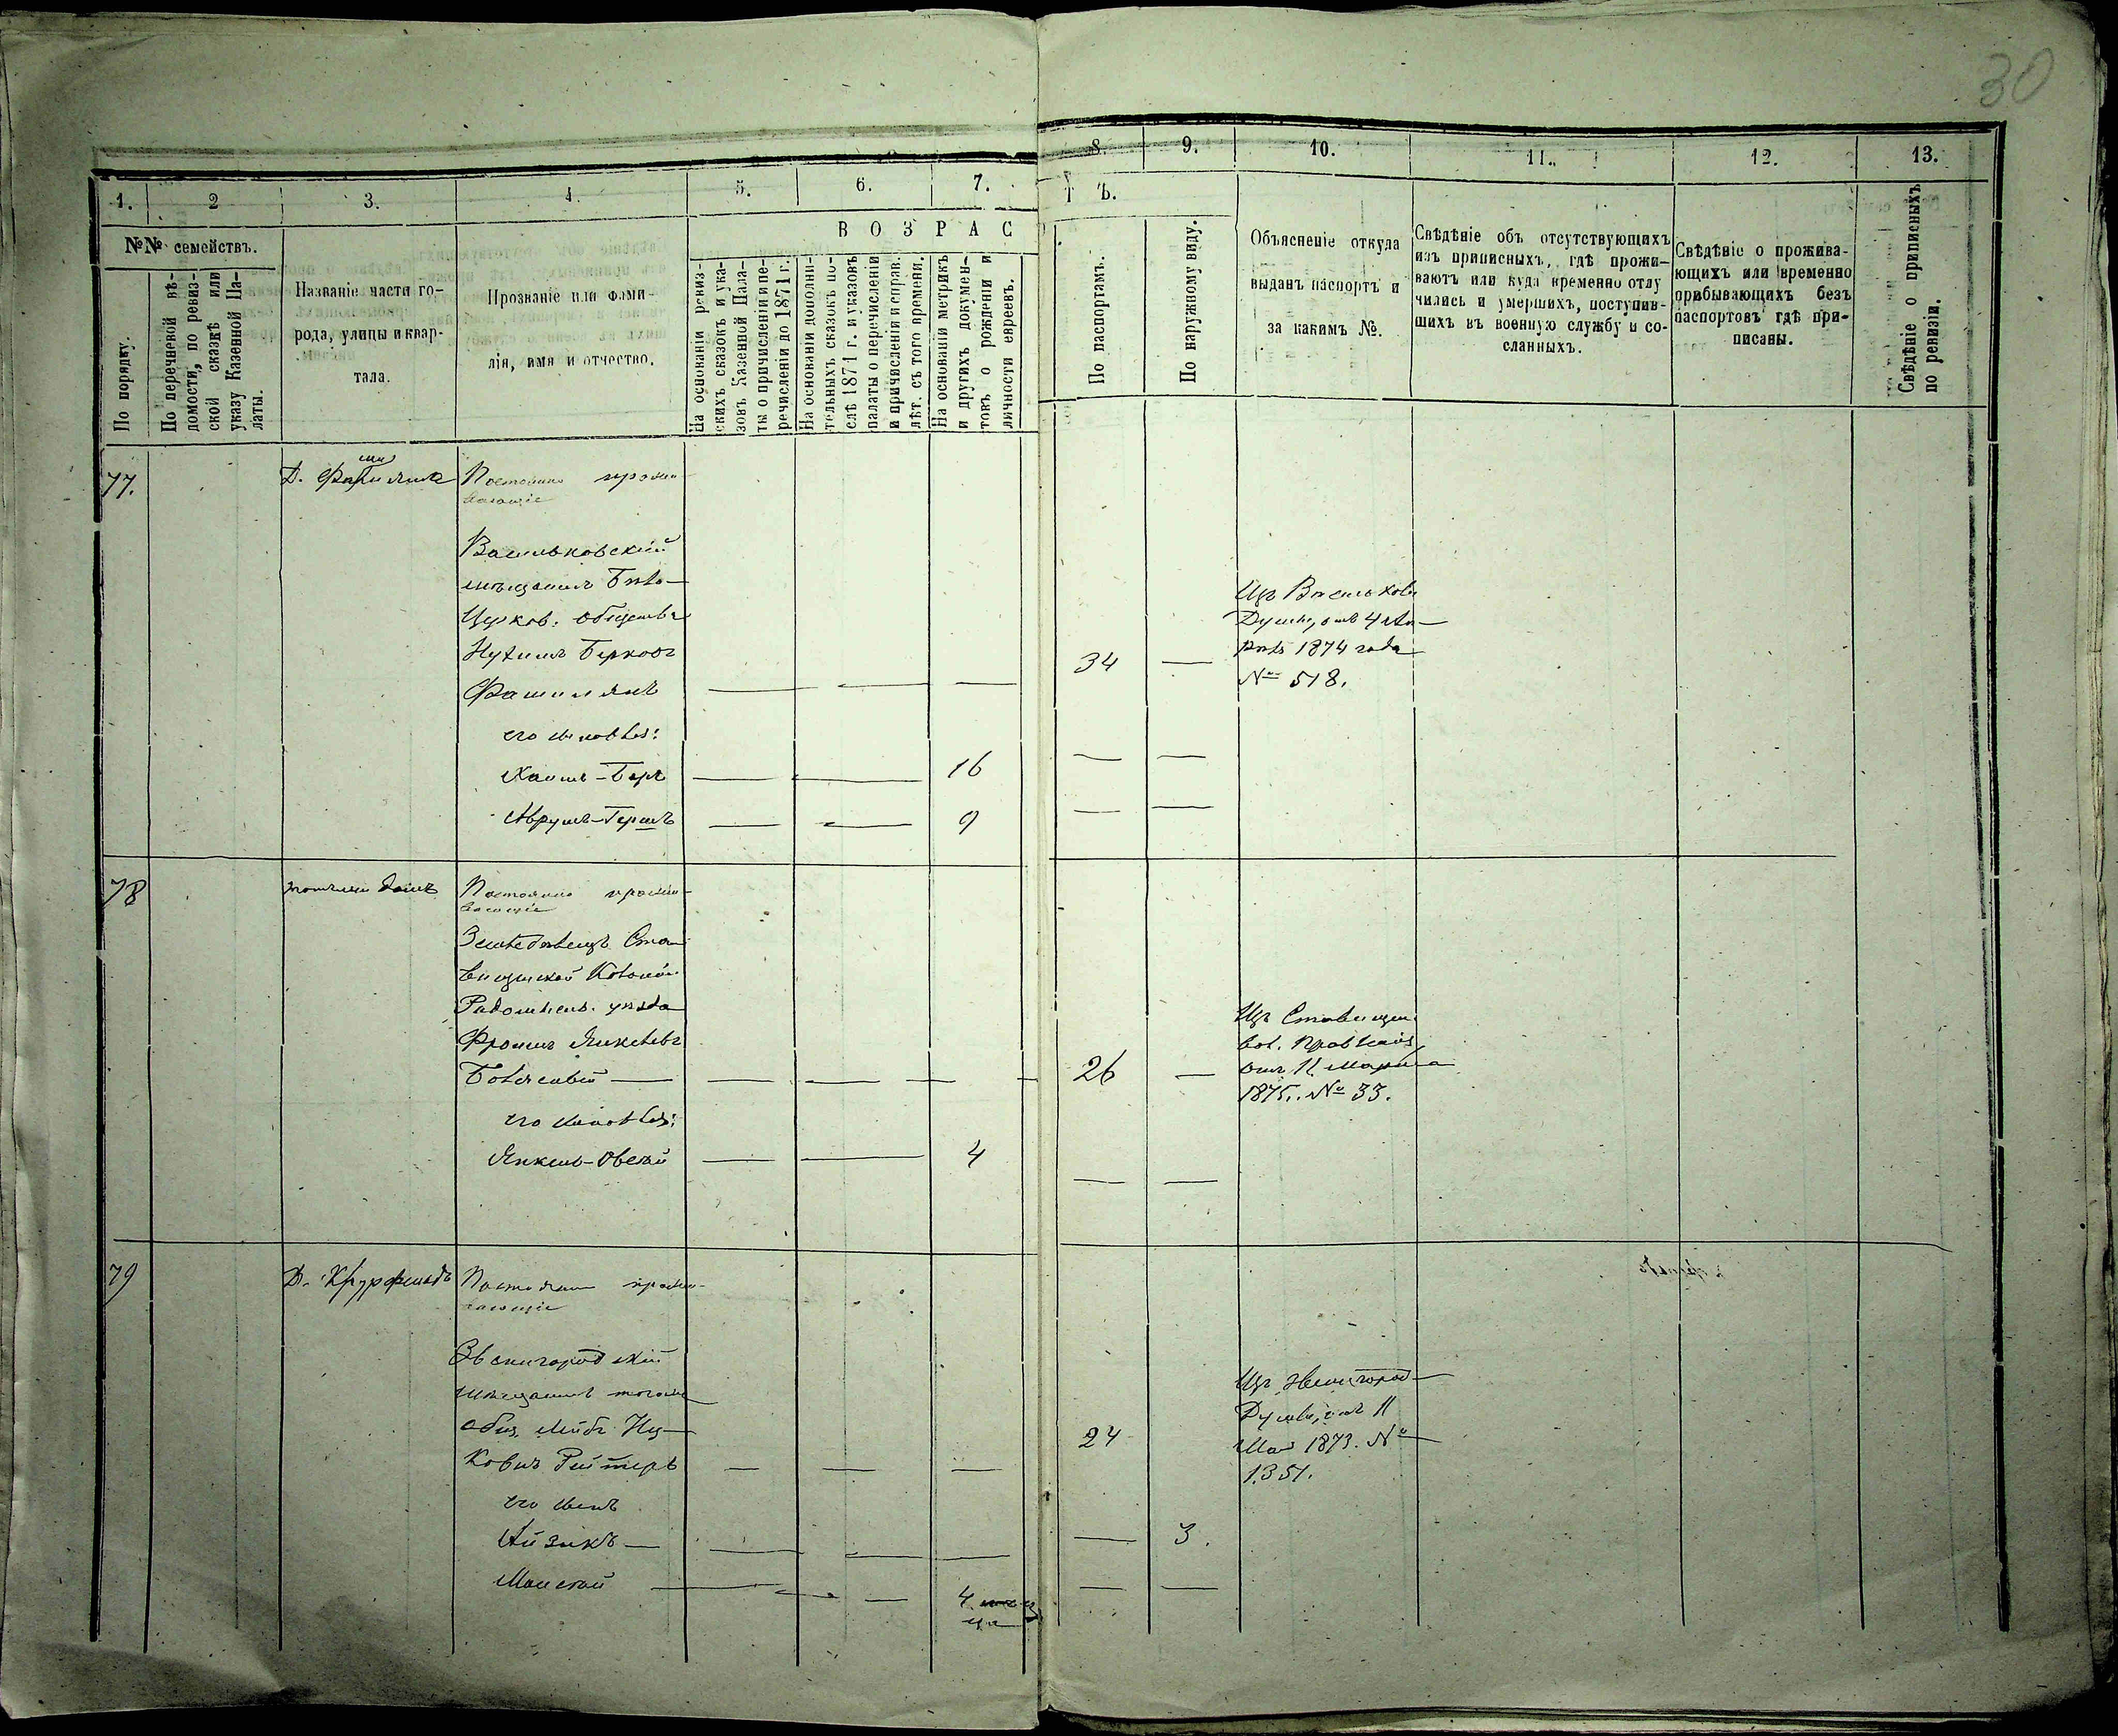 30
1. 2 3. 4. 5. 6. 7.
8. 9. 10. 11. 12. 13.
№№ семействъ.
По порядку.
По перечневой вѣ-
домости, по ревиз-
ской сказкѣ или
указу Казенной Па-
латы.
Названіе части го-
рода, улицы и квар-
тала.
Прозваніе или фами-
лія, имя и отчество.
ВОЗРАС
На основаніи ревиз-
скихъ сказокъ и ука-
зовъ Казенной Пала-
ты о причисленіи и пе-
речисленіи до 1871 г.
На основаніи дополни-
тельныхъ сказокъ по-
слѣ 1871 г. и указовъ
палаты о перечисленіи
и причисленіи и справ.
лѣт. съ того времени.
На основаніи метрикъ
и другихъ докумен-
товъ о рожденіи и
личности евреевъ.
Т Ъ.
По паспортамъ.
По наружному виду.
Объясненіе откуда
выданъ паспортъ и
за какимъ №.
Свѣдѣніе объ отсутствующихъ
изъ приписныхъ, гдѣ прожи-
ваютъ или куда временно отлу
чились и умершихъ, поступив-
шихъ въ военную службу и со-
сланныхъ.
Свѣдѣніе о прожива-
ющихъ или временно
прибывающихъ безъ
паспортовъ гдѣ при-
писаны.
Свѣдѣніе о приписныхъ
по ревизіи.
77. Д. Постоянно прожи-
вающіе
Васильковскій
мѣщанинъ Бѣло-
Церков. общества
Нухимъ Берковъ
Фашинянъ — — — 34 —
Изъ Васильков.
Думы, отъ 4 Ап-
рѣля 1874 года
№ 518.
его сыновья:
Хаимъ-Беръ — — 16 — —
Аврумъ-Гершъ — — 9 — —
78 тотже домъ Постоянно прожи-
вающіе
Земледѣлецъ Ста-
вищской Колоніи
Радомысл. уѣзда
Фроимъ Янкелевъ
Болясный — — — — 26 —
Изъ Ставищен.
вол. Правленія
отъ 11 Марта
1875. № 33.
его сыновья:
Янкель-Овсѣй — — 4 — —
79 Д. Постоянно прожи-
вающіе
Звенигородскій
мѣщанинъ тогоже
общ. Лейбъ Иц-
ковичъ Рейтеръ — — — 24
Изъ Звенигород-
Думы, отъ 11
Мая 1873. №
1351.
его сынъ
Айзикъ — — — — — 3.
Моисѣй — — — 4 — —